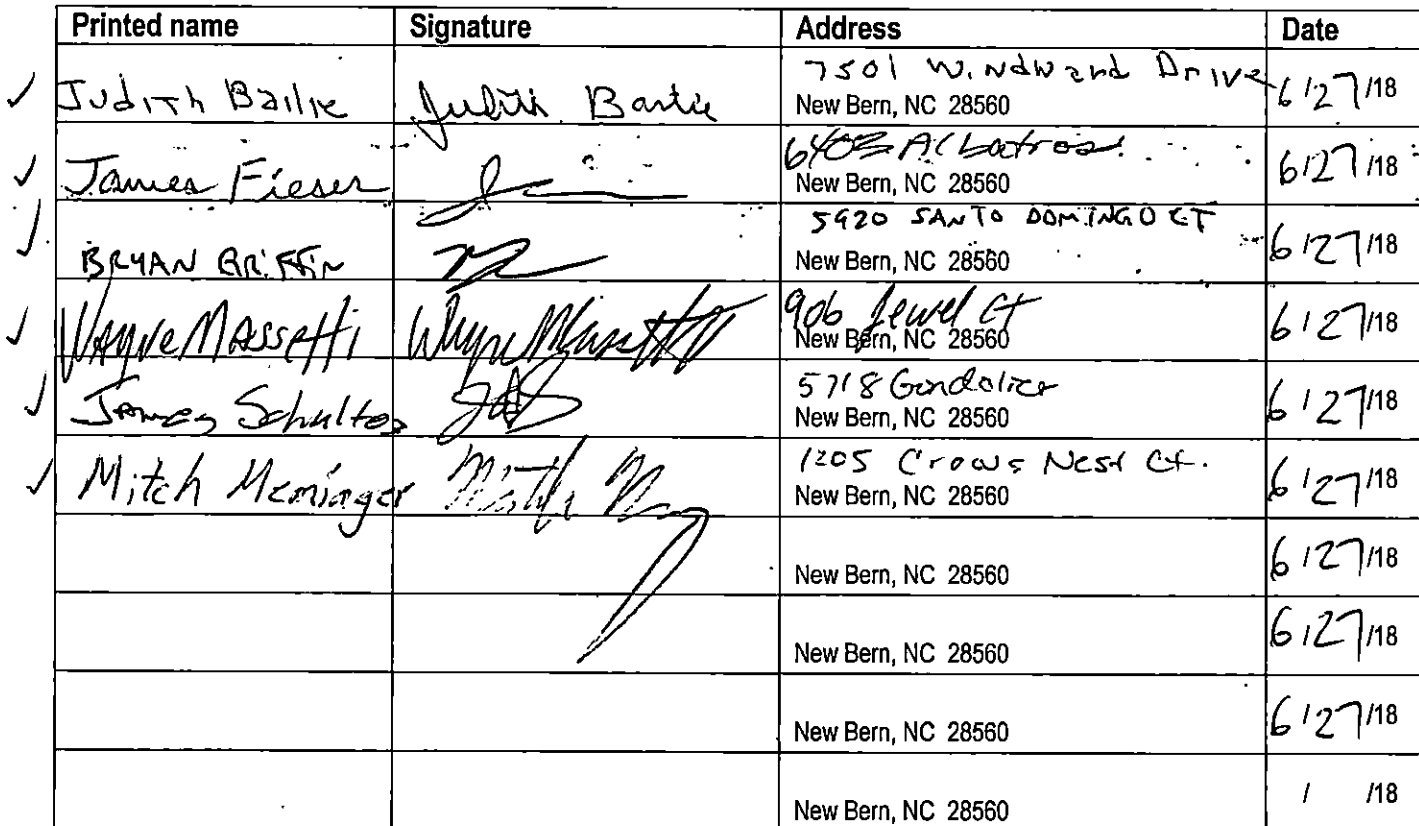 Printed name Signature Address Date
✓ Judith Bailie Judith Bailie 7501 Windward Drive
New Bern, NC 28560 6/27/18
✓ James Fieser 6403 Albatross
New Bern, NC 28560 6/27/18
✓ BRYAN GRIFFIN 5920 SANTO DOMINGO CT
New Bern, NC 28560 6/27/18
✓ Wayne Massetti Wayne Massetti 906 Jewel Ct
New Bern, NC 28560 6/27/18
✓ James Schultes 5718 Gondolier
New Bern, NC 28560 6/27/18
✓ Mitch Meminger 1205 Crows Nest Ct.
New Bern, NC 28560 6/27/18
New Bern, NC 28560 6/27/18
New Bern, NC 28560 6/27/18
New Bern, NC 28560 6/27/18
New Bern, NC 28560 / /18